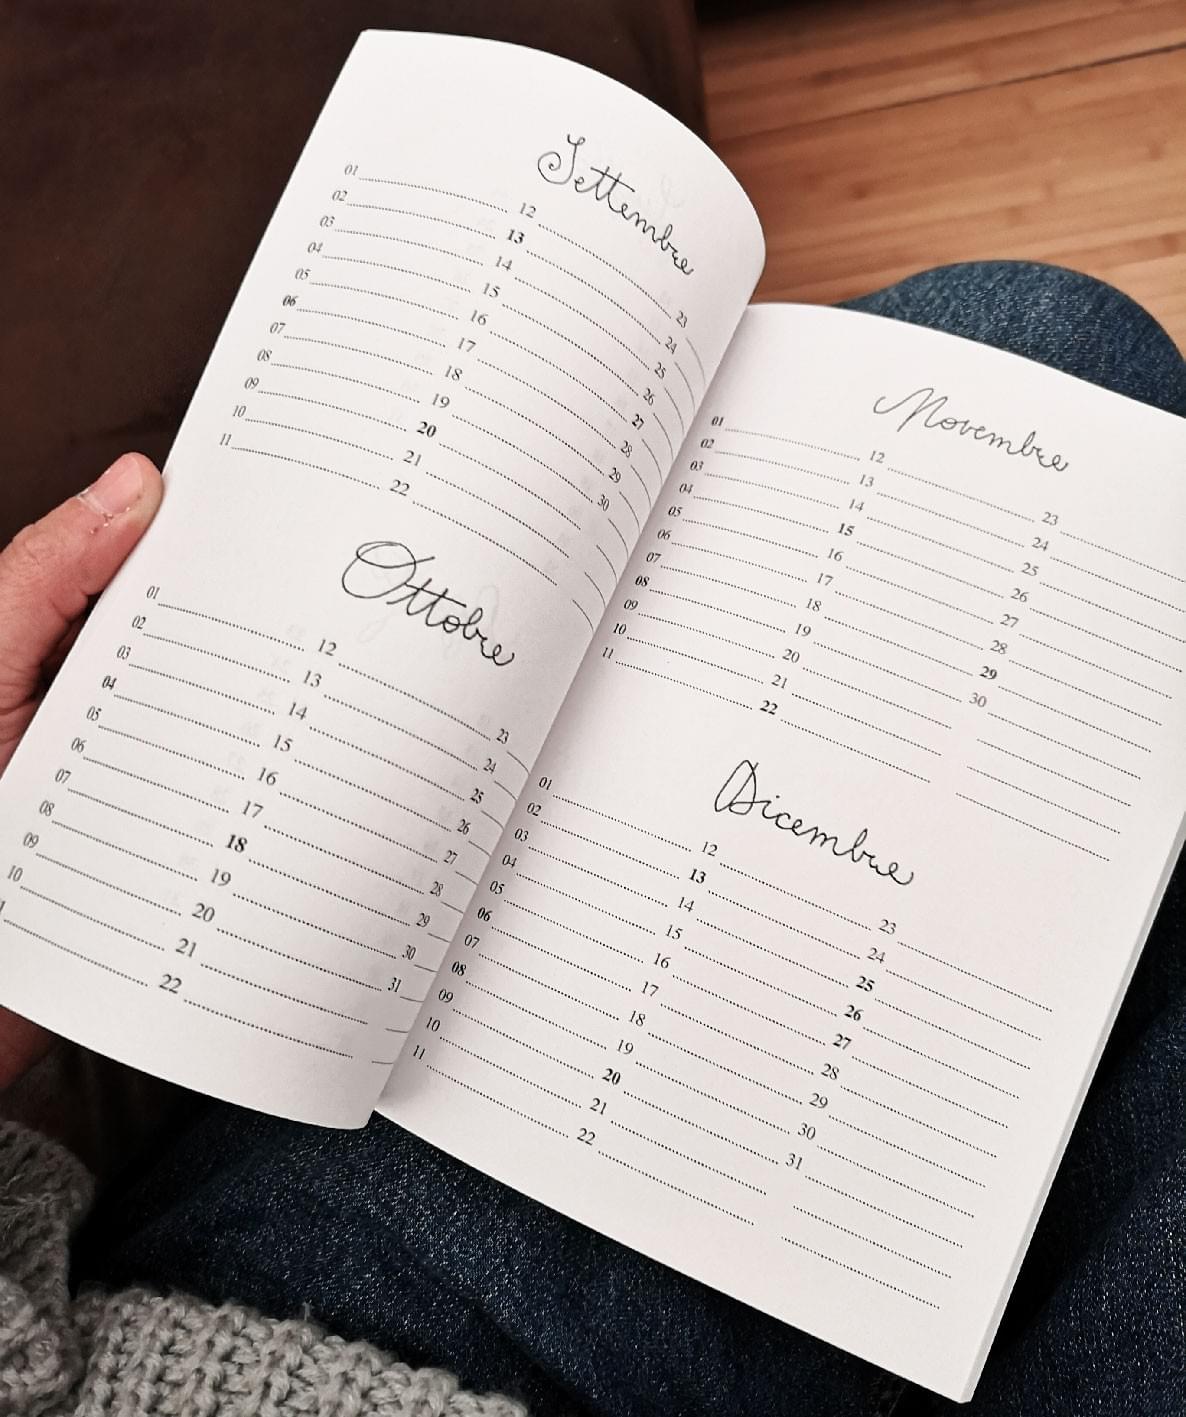 Settembre
01 12 23
02 13 24
03 14 25
04 15 26
05 16 27
06 17 28
07 18 29
08 19 30
09 20
10 21
11 22
Ottobre
01 12 23
02 13 24
03 14 25
04 15 26
05 16 27
06 17 28
07 18 29
08 19 30
09 20 31
10 21
22
Novembre
01 12 23
02 13 24
03 14 25
04 15 26
05 16 27
06 17 28
07 18 29
08 19 30
09 20
10 21
11 22
Dicembre
01 12 23
02 13 24
03 14 25
04 15 26
05 16 27
06 17 28
07 18 29
08 19 30
09 20 31
10 21
11 22